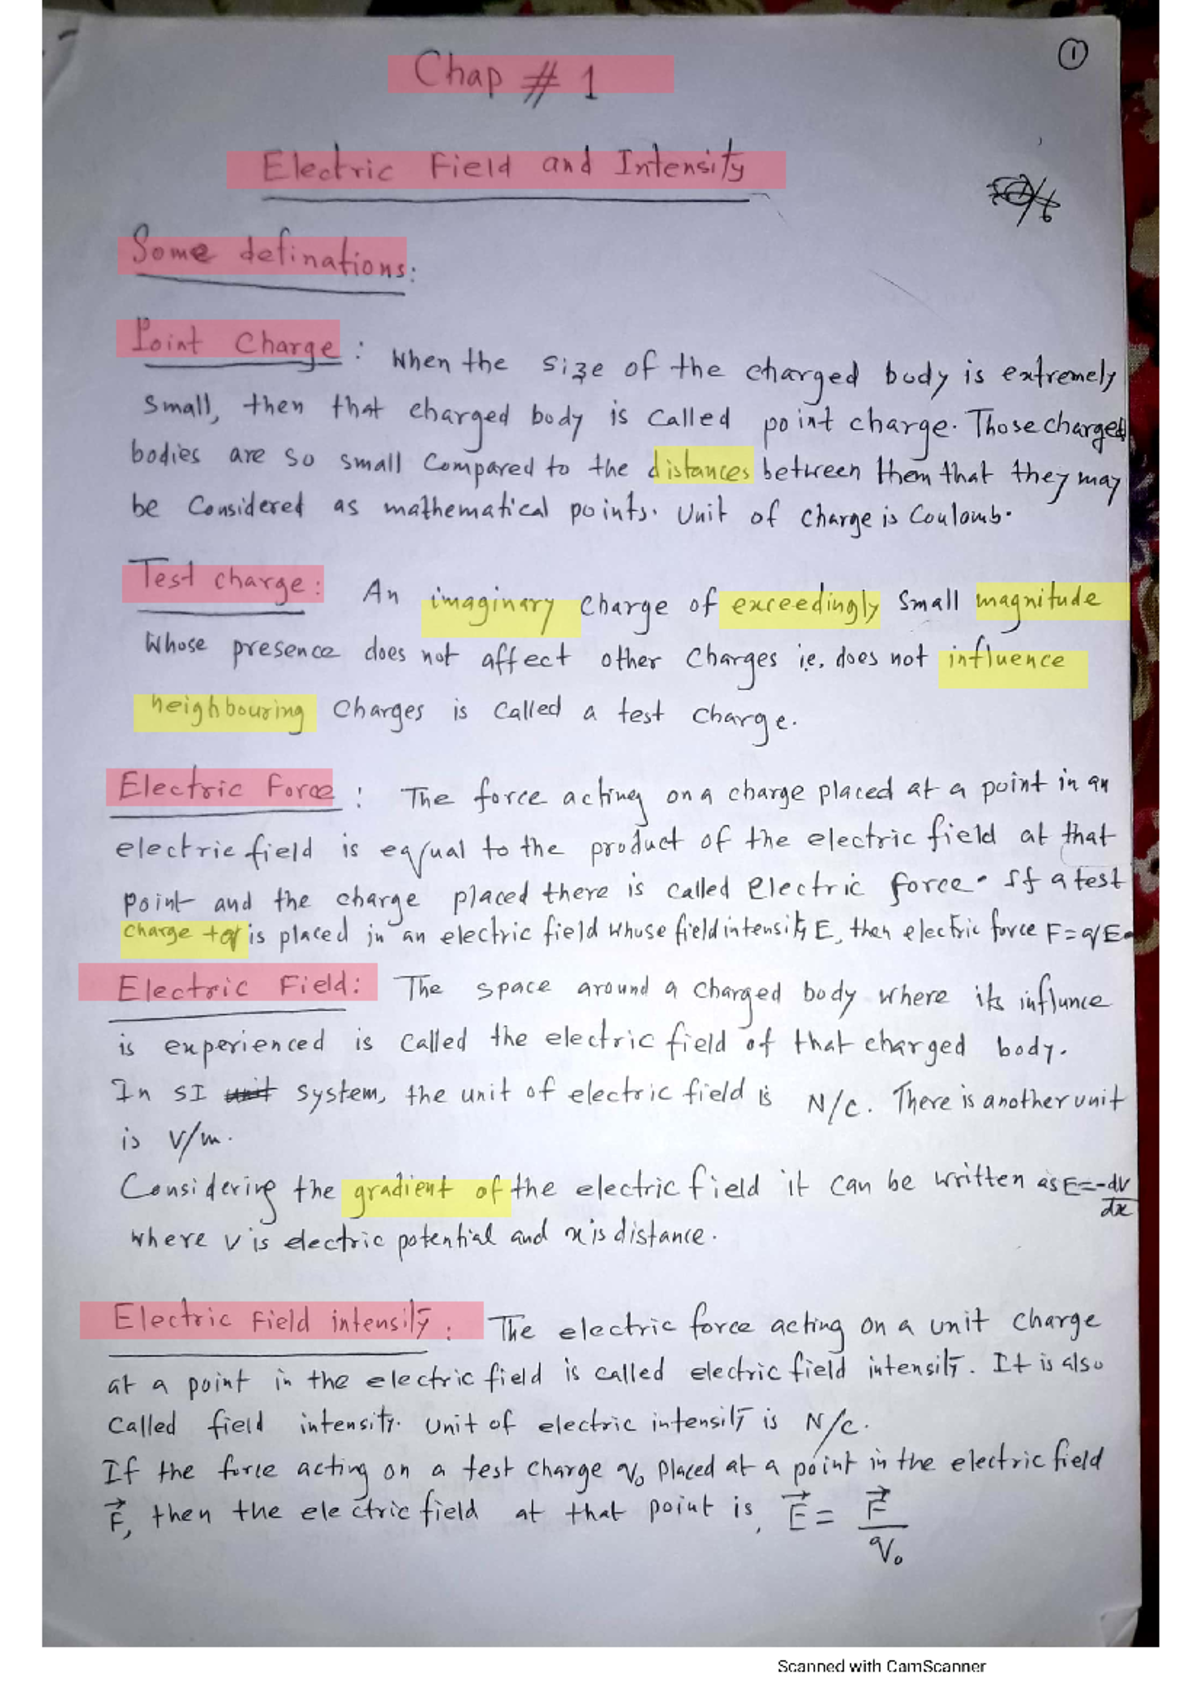 1
Chap # 1
Electric Field and Intensity
Some definations:
Point Charge : When the size of the charged body is extremely
small, then that charged body is called point charge. Those charged
bodies are so small compared to the distances between them that they may
be Considered as mathematical points. Unit of charge is Coulomb.
Test charge: An imaginary charge of exceedingly small magnitude
whose presence does not affect other charges i.e. does not influence
neighbouring charges is called a test charge.
Electric Force : The force acting on a charge placed at a point in an
electric field is equal to the product of the electric field at that
point and the charge placed there is called electric force. If a test
charge +q is placed in an electric field whose field intensity E, then electric force F=qE.
Electric Field: The space around a charged body where its influnce
is experienced is called the electric field of that charged body.
In SI unit system, the unit of electric field is N/C. There is another unit
is V/m.
Considering the gradient of the electric field it can be written as E=-dV/dx
where V is electric potential and x is distance.
Electric Field intensity : The electric force acting on a unit charge
at a point in the electric field is called electric field intensity. It is also
called field intensity. Unit of electric intensity is N/C.
If the force acting on a test charge q₀ placed at a point in the electric field
F⃗, then the electric field at that point is, E⃗ = F⃗/q₀
Scanned with CamScanner